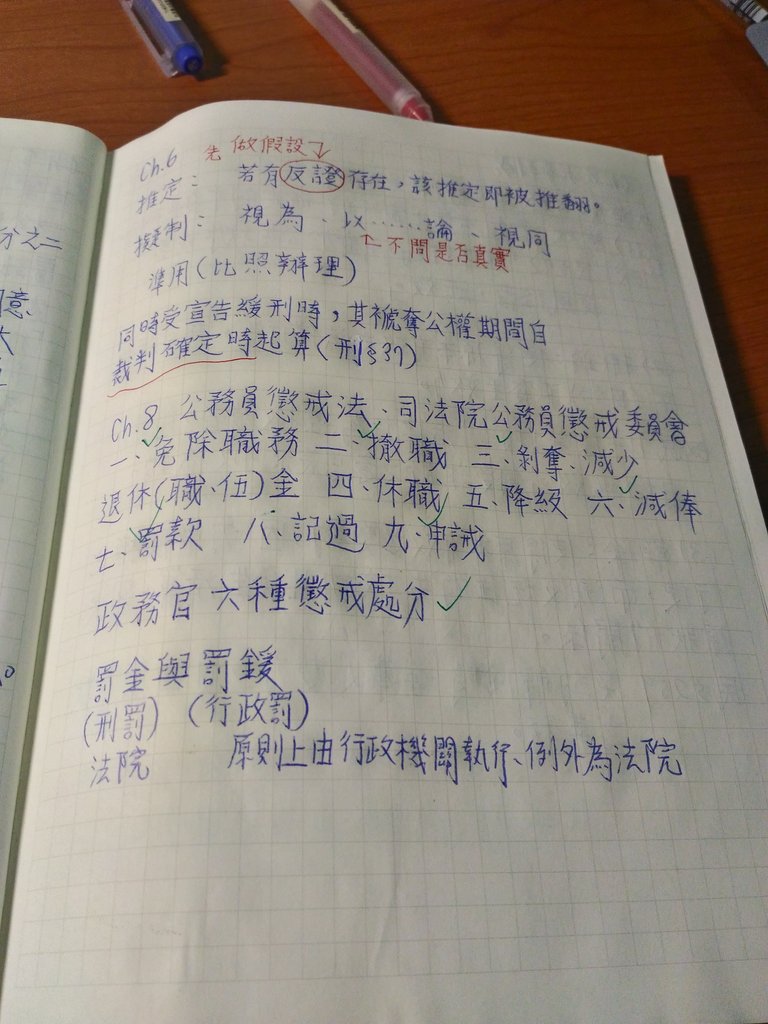 分之二
意
Ch.6 先做假設
推定：若有反證存在，該推定即被推翻。
擬制：視為、以……論、視同
不問是否真實
準用(比照辦理)
同時受宣告緩刑時，其褫奪公權期間自
裁判確定時起算(刑§37)
Ch.8 公務員懲戒法、司法院公務員懲戒委員會
一、免除職務 二、撤職 三、剝奪、減少
退休(職、伍)金 四、休職 五、降級 六、減俸
七、罰款 八、記過 九、申誡
政務官六種懲戒處分
罰金與罰鍰
(刑罰) (行政罰)
法院 原則上由行政機關執行、例外為法院